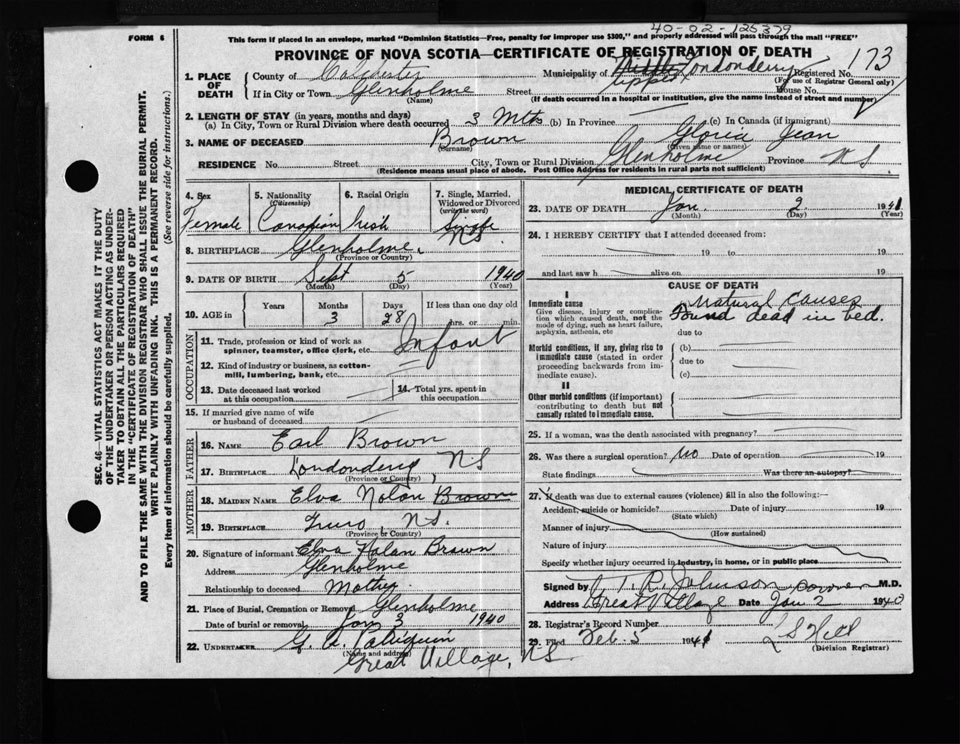 40-02-125379
FORM 6
This form if placed in an envelope, marked "Dominion Statistics—Free, penalty for improper use $300," and properly addressed will pass through the mail "FREE"
PROVINCE OF NOVA SCOTIA—CERTIFICATE OF REGISTRATION OF DEATH
SEC. 46—VITAL STATISTICS ACT MAKES IT THE DUTY
OF THE UNDERTAKER OR PERSON ACTING AS UNDER-
TAKER TO OBTAIN ALL THE PARTICULARS REQUIRED
IN THE "CERTIFICATE OF REGISTRATION OF DEATH"
AND TO FILE THE SAME WITH THE DIVISION REGISTRAR WHO SHALL ISSUE THE BURIAL PERMIT.
WRITE PLAINLY WITH UNFADING INK. THIS IS A PERMANENT RECORD.
Every item of information should be carefully supplied. (See reverse side for instructions.)
1. PLACE OF DEATH
County of Colchester Municipality of Middle Londonderry Registered No. 173
Upper
(For use of Registrar General only)
If in City or Town Glenholme Street House No.
(Name) (If death occurred in a hospital or institution, give the name instead of street and number)
2. LENGTH OF STAY (in years, months and days)
(a) In City, Town or Rural Division where death occurred 3 Mths (b) In Province (c) In Canada (if immigrant)
3. NAME OF DECEASED Brown Gloria Jean
(Surname) (Given name or names)
RESIDENCE No. Street City, Town or Rural Division Glenholme Province N S
(Residence means usual place of abode. Post Office Address for residents in rural parts not sufficient)
4. Sex Female
5. Nationality (Citizenship) Canadian
6. Racial Origin Irish
7. Single, Married, Widowed or Divorced (write the word) Single
8. BIRTHPLACE Glenholme, NS
(Province or Country)
9. DATE OF BIRTH Sept 5 1940
(Month) (Day) (Year)
10. AGE in Years Months 3 Days 28 If less than one day old hrs. or min.
OCCUPATION
11. Trade, profession or kind of work as spinner, teamster, office clerk, etc. Infant
12. Kind of industry or business, as cotton-mill, lumbering, bank, etc.
13. Date deceased last worked at this occupation
14. Total yrs. spent in this occupation
15. If married give name of wife or husband of deceased
FATHER
16. NAME Earl Brown
17. BIRTHPLACE Londonderry NS
(Province or Country)
MOTHER
18. MAIDEN NAME Elva Nolan Brown
19. BIRTHPLACE Truro, NS.
(Province or Country)
20. Signature of informant Elva Nolan Brown
Address Glenholme
Relationship to deceased Mother
21. Place of Burial, Cremation or Removal Glenholme
Date of burial or removal Jan 3 1940
22. UNDERTAKER
(Name and address)
Great Village, NS
MEDICAL CERTIFICATE OF DEATH
23. DATE OF DEATH Jan. 2 1941
(Month) (Day) (Year)
24. I HEREBY CERTIFY that I attended deceased from:
19 to 19
and last saw h alive on 19
CAUSE OF DEATH
I
Immediate cause
Give disease, injury or complication which caused death, not the mode of dying, such as heart failure, asphyxia, asthenia, etc
Natural causes
Found dead in bed.
due to
Morbid conditions, if any, giving rise to immediate cause (stated in order proceeding backwards from immediate cause).
(b)
due to
(c)
II
Other morbid conditions (if important) contributing to death but not causally related to immediate cause.
25. If a woman, was the death associated with pregnancy?
26. Was there a surgical operation? No Date of operation 19
State findings Was there an autopsy?
27. If death was due to external causes (violence) fill in also the following:—
Accident, suicide or homicide? Date of injury 19
(State which)
Manner of injury
(How sustained)
Nature of injury
Specify whether injury occurred in industry, in home, or in public place
Signed by T. R. Johnson Coroner M.D.
Address Great Village Date Jan 2 1940
28. Registrar's Record Number
29. Filed Feb. 5 1941
(Division Registrar)